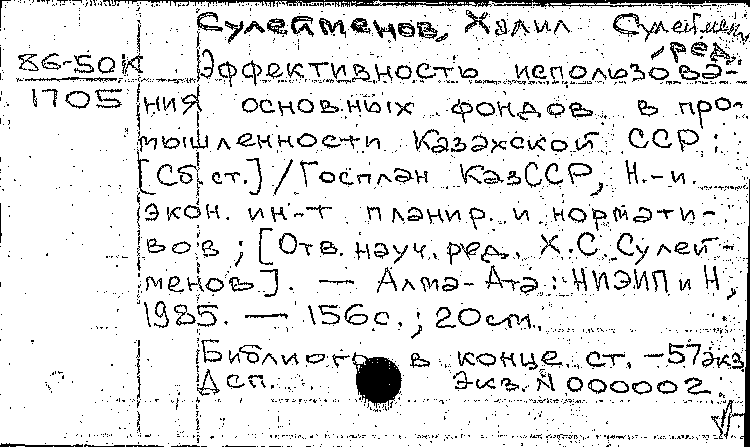 Сулейменов, Халил Сулеймен.
ред.
86-50К
1705
Эффективность использова-
ния основных фондов в про-
мышленности Казахской ССР:
[Сб.ст.]/Госплан КазССР, Н.-и.
экон. ин-т планир. и нормати-
вов; [Отв. науч. ред. Х.С. Сулей-
менов]. — Алма-Ата: НИЭИПиН,
1985. — 156с.; 20см.
Библиогр в конце ст. —57экз
Дсп. Экз.N 000002.